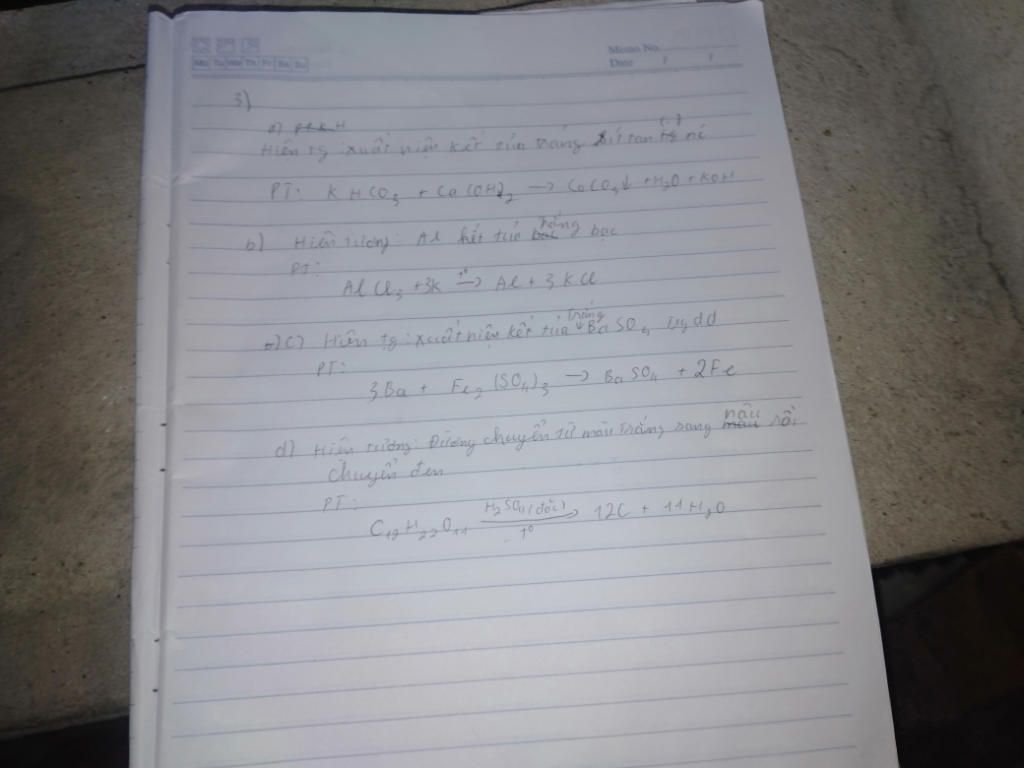 Mo Tu We Th Fr Sa Su
Memo No.
Date / /
3)
a)
Hiện tg: xuất hiện kết tủa trắng ít tan
PT: KHCO₃ + Ca(OH)₂ → CaCO₃↓ + H₂O + KOH
b) Hiện tượng: Al kết tủa trắng bạc
PT:
AlCl₃ + 3K →(t⁰) Al + 3KCl
c) Hiện tg: xuất hiện kết tủa trắng ↓ BaSO₄ trg dd
PT:
3Ba + Fe₂(SO₄)₃ → BaSO₄ + 2Fe
d) Hiện tượng: Đường chuyển từ màu trắng sang nâu rồi
chuyển đen
PT:
C₁₂H₂₂O₁₁ →(H₂SO₄(đặc), t⁰) 12C + 11H₂O